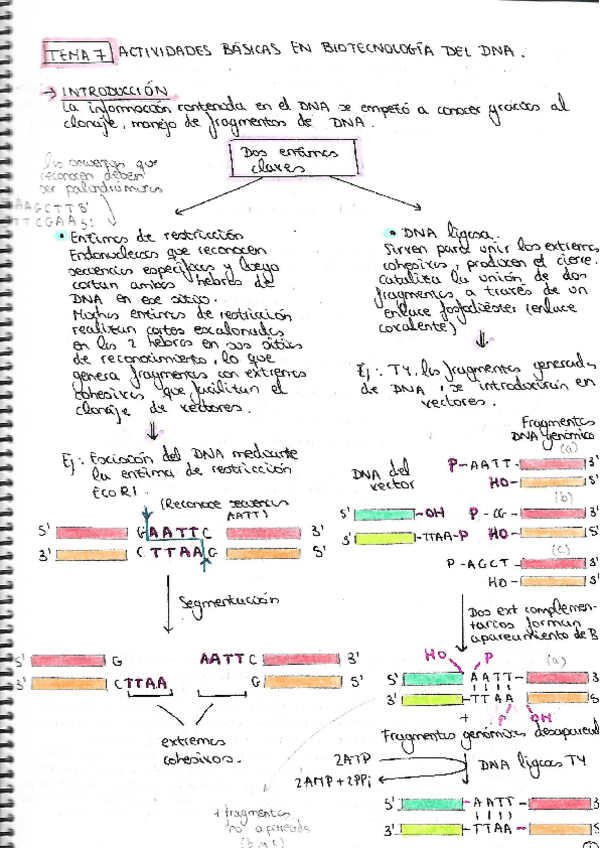 TEMA 7 ACTIVIDADES BÁSICAS EN BIOTECNOLOGÍA DEL DNA.
→ INTRODUCCIÓN
La información contenida en el DNA se empezó a conocer gracias al
clonaje, manejo de fragmentos de DNA.
Dos enzimas
claves
las secuencias que
reconocen deben
ser palindrómicas
AAGCTT 3'
TTCGAA 5'
• Enzimas de restricción
Endonucleasas que reconocen
secuencias específicas y luego
cortan ambas hebras de
DNA en ese sitio.
Muchas enzimas de restricción
realizan cortes escalonados
en las 2 hebras en sus sitios
de reconocimiento, lo que
genera fragmentos con extremos
cohesivos, que facilitan el
clonaje de vectores.
Ej: Escisión del DNA mediante
la enzima de restricción
EcoR1.
(Reconoce secuencias
AATT)
5' G AATT C 3'
3' C TTAA G 5'
Segmentación
5' G AATT C 3'
3' CTTAA G 5'
extremos
cohesivos.
• DNA ligasa.
Sirven para unir los extremos
cohesivos, producen el cierre.
Cataliza la unión de dos
fragmentos a través de un
enlace fosfodiéster (enlace
covalente)
Ej: T4, los fragmentos generados
de DNA, se introducirán en
vectores.
Fragmentos
DNA genómico
(a)
P-AATT- 3'
HO- 5'
DNA del
vector
(b)
5' -OH P-CG- 3'
3' -TTAA-P HO- 5'
(c)
P-AGCT- 3'
HO- 5'
Dos ext complemen-
tarios forman
apareamiento de B
HO P (a)
5' AATT- 3'
3' -TTAA 5'
+ P OH
Fragmentos genómicos desapareal
2ATP
2AMP+2PPi
DNA ligasa T4
5' -AATT- 3'
3' -TTAA- 5'
+ fragmentos
no apareados
(b y c)